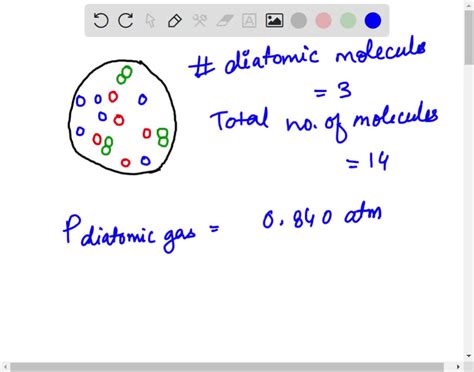 # diatomic molecule
= 3
Total no. of molecules
= 14
P diatomic gas = 0.840 atm